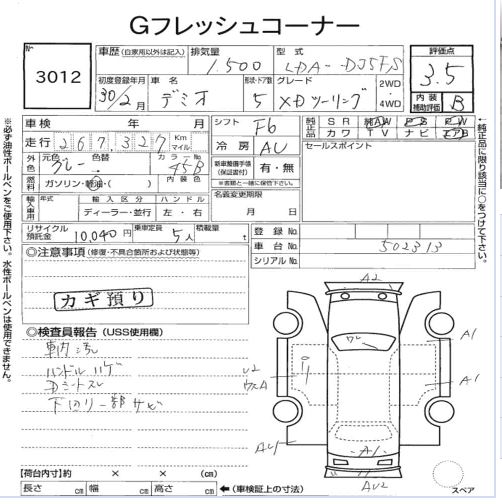 Gフレッシュコーナー
No
3012
車歴 (自家用以外は記入)
排気量
1,500
型式
LDA-DJ5FS
評価点
3.5
内装
補助評価
B
初度登録年月
30/2月
車名
デミオ
形状・ドア数
5
グレード
XDツーリング
2WD
・
4WD
車検 年 月
シフト
F6
純正品
SR AW PS PW
カワ TV ナビ エアB
走行
267,327
Km
マイル
冷房
AU
セールスポイント
外色
グレー
色替
カラーNo
45B
内装色
燃料
ガソリン・軽油・( )
新車整備手帳
(保証書付)
有・無
※書類と一緒に保管して下さい。
輸入車用
年式
輸入区分
ディーラー・並行
ハンドル
左・右
名義変更期限
月 日
リサイクル
預託金
10,040円
乗車定員
5人
積載量
登録No
車台No
502313
シリアルNo
◎注意事項 (修復・不具合箇所および状態等)
カギ預り
◎検査員報告 (USS使用欄)
車内汚れ
ハンドルハゲ
Dシートスレ
下廻り一部サビ
A2
A1
A1
A1
AU2
スペア
【荷台内寸】約 × × (cm)
長さ cm 幅 cm 高さ cm ←(車検証上の寸法)
※必ず油性ボールペンをご使用下さい。水性ボールペンは使用できません。
※純正品に限り該当に○をつけて下さい。